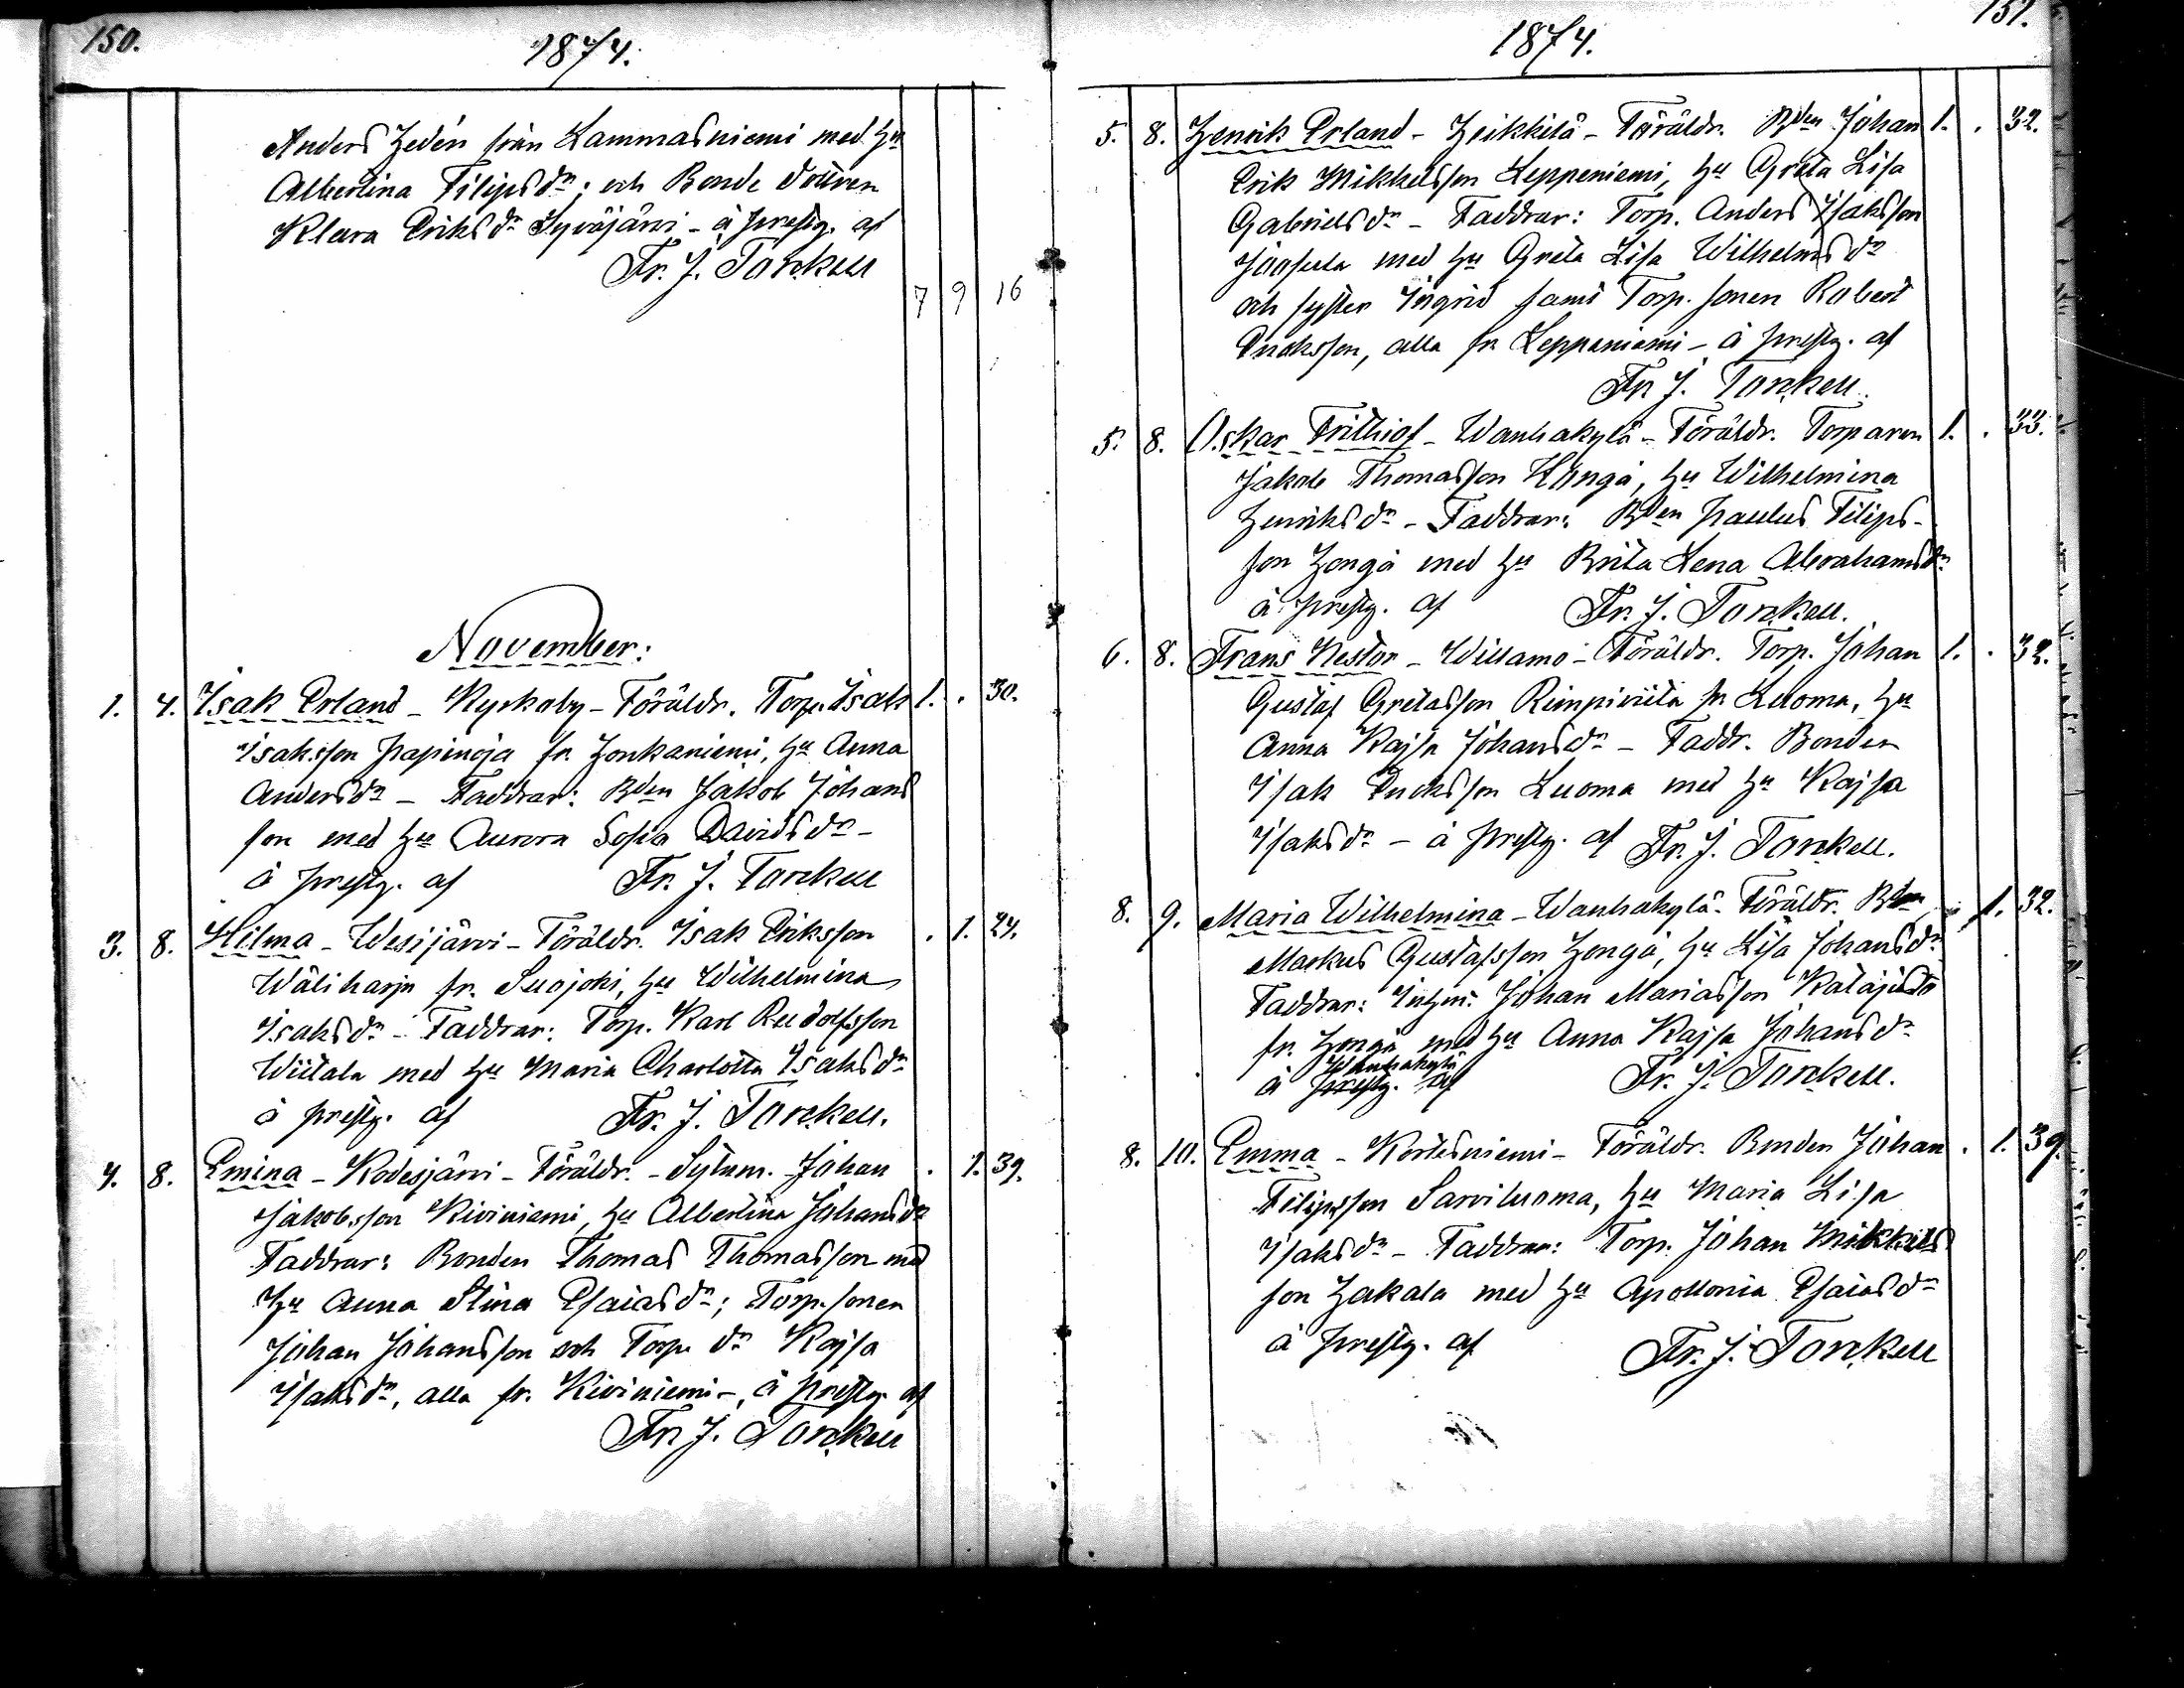 150.
1874.
Anders Hedén från Kammasniemi med Hu
Albertina Filips dr; och Bonde dottren
Klara Eriks dr Syväjärvi - å prestg. af
Fr. J. Torckell
7 9 16
November:
1. 4. Isak Erland - Kyrkoby - Föräldr. Torp. Isak 1. . 30.
Isaksson Papinoja fr. Honkaniemi, Hu Anna
Anders dr - Faddrar: Bden Jakob Johans
son med Hu Aurora Sofia Davids dr -
å prestg. af Fr. J. Torckell
3. 8. Hilma - Wesijärvi - Föräldr. Isak Eriksson . 1. 24.
Wäliharju fr. Suojoki, Hu Wilhelmina
Isaks dr - Faddrar: Torp. Karl Rudolfsson
Wiitala med Hu Maria Charlotta Isaks dr
å prestg. af Fr. J. Torckell.
4. 8. Emina - Kodesjärvi - Föräldr. - Sytnm. Johan . 1. 39.
Jakobsson Kiviniemi, Hu Albertina Johans dr
Faddrar: Bonden Thomas Thomasson med
Hu Anna Stina Esaias dr; Torp. sonen
Johan Johansson och Torp. dr Kajsa
Isaks dr, alla fr. Kiviniemi -, å prestg. af
Fr. J. Torckell
151.
1874.
5. 8. Henrik Erland - Heikkilä - Föräldr. Bden Johan 1. . 32.
Erik Mikkelsson Leppeniemi, Hu Greta Lisa
Gabriels dr - Faddrar: Torp. Anders Isaksson
med Hu Greta Lisa Wilhelms dr
och syster Ingrid samt Torp. sonen Robert
Enoksson, alla fr Leppeniemi - å prestg. af
Fr J. Torckell.
5. 8. Oskar Frithiof - Wanhakylä - Föräldr. Torparen 1. . 33.
Jakob Thomasson Hongå, Hu Wilhelmina
Henriks dr - Faddrar: Bden Paulus Filips-
son Hongå med Hu Brita Lena Abrahams dr
å prestg. af Fr. J. Torckell.
6. 8. Frans Nestor - Willamo - Föräldr. Torp. Johan 1. . 32.
Gustaf Gretasson Rimpiviita fr Luoma, Hu
Anna Kajsa Johans dr - Faddr. Bonden
Isak Enoksson Luoma med Hu Kajsa
Isaks dr - å prestg. af Fr. J. Torckell.
8. 9. Maria Wilhelmina - Wanhakylä - Föräldr. Bden . 1. 32.
Markus Gustafsson Hongå, Hu Lisa Johans dr
Faddrar: Inhm. Johan Mariasson Katajisto
fr. Hongå med Hu Anna Kajsa Johans dr
Wanhakylä
å prestg. af Fr. J. Torckell.
8. 10. Emma - Kortesniemi - Föräldr. Bonden Johan . 1. 39.
Filipsson Sarviluoma, Hu Maria Lisa
Isaks dr - Faddrar: Torp. Johan Mikkels
son Hakala med Hu Apollonia Esaias dr
å prestg. af Fr. J. Torckell